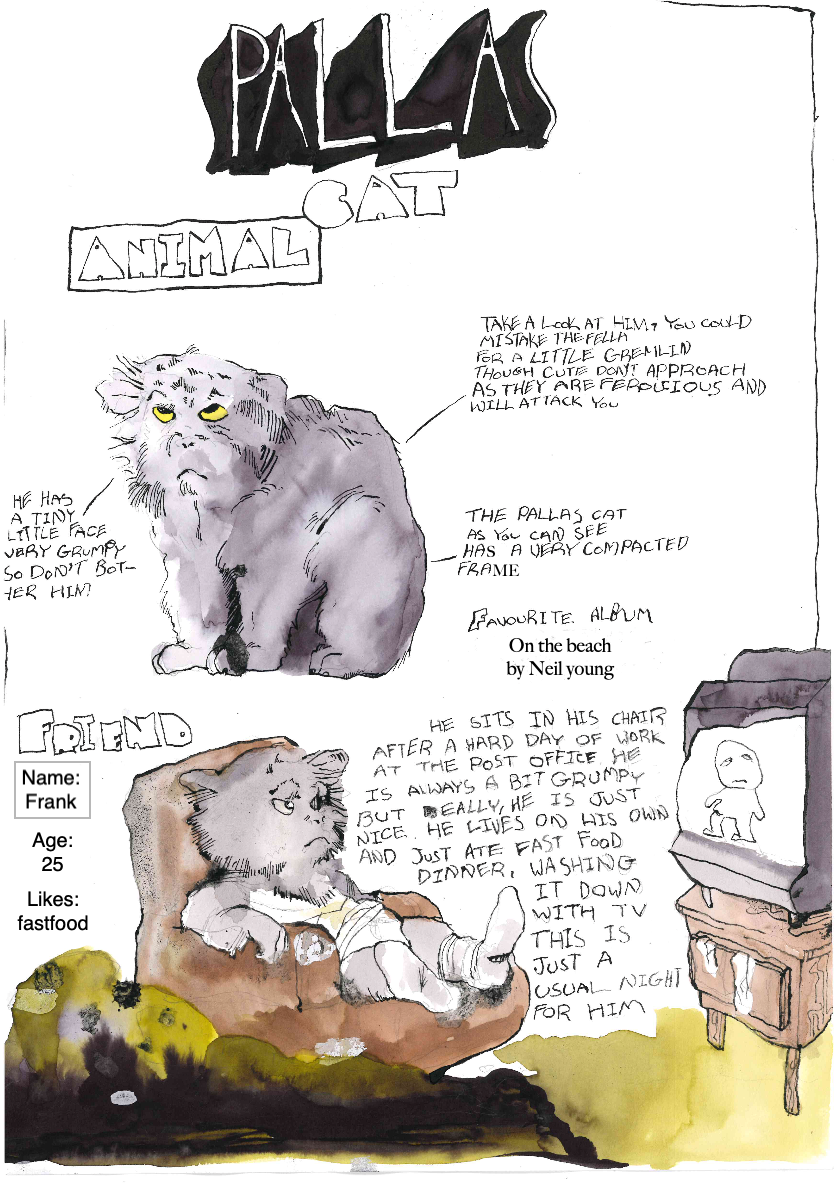 PALLAS
CAT
ANIMAL
TAKE A LOOK AT HIM, YOU COULD
MISTAKE THE FELLA
FOR A LITTLE GREMLIN
THOUGH CUTE DON'T APPROACH
AS THEY ARE FEROUCIOUS AND
WILL ATTACK YOU
HE HAS
A TINY
LITTLE FACE
VERY GRUMPY
SO DON'T BOT-
HER HIM
THE PALLAS CAT
AS YOU CAN SEE
HAS A VERY COMPACTED
FRAME
FAVOURITE ALBUM
On the beach
by Neil young
FRIEND
Name:
Frank
Age:
25
Likes:
fastfood
HE SITS IN HIS CHAIR
AFTER A HARD DAY OF WORK
AT THE POST OFFICE HE
IS ALWAYS A BIT GRUMPY
BUT REALLY, HE IS JUST
NICE. HE LIVES ON HIS OWN
AND JUST ATE FAST FOOD
DINNER, WASHING
IT DOWN
WITH TV
THIS IS
JUST A
USUAL NIGHT
FOR HIM